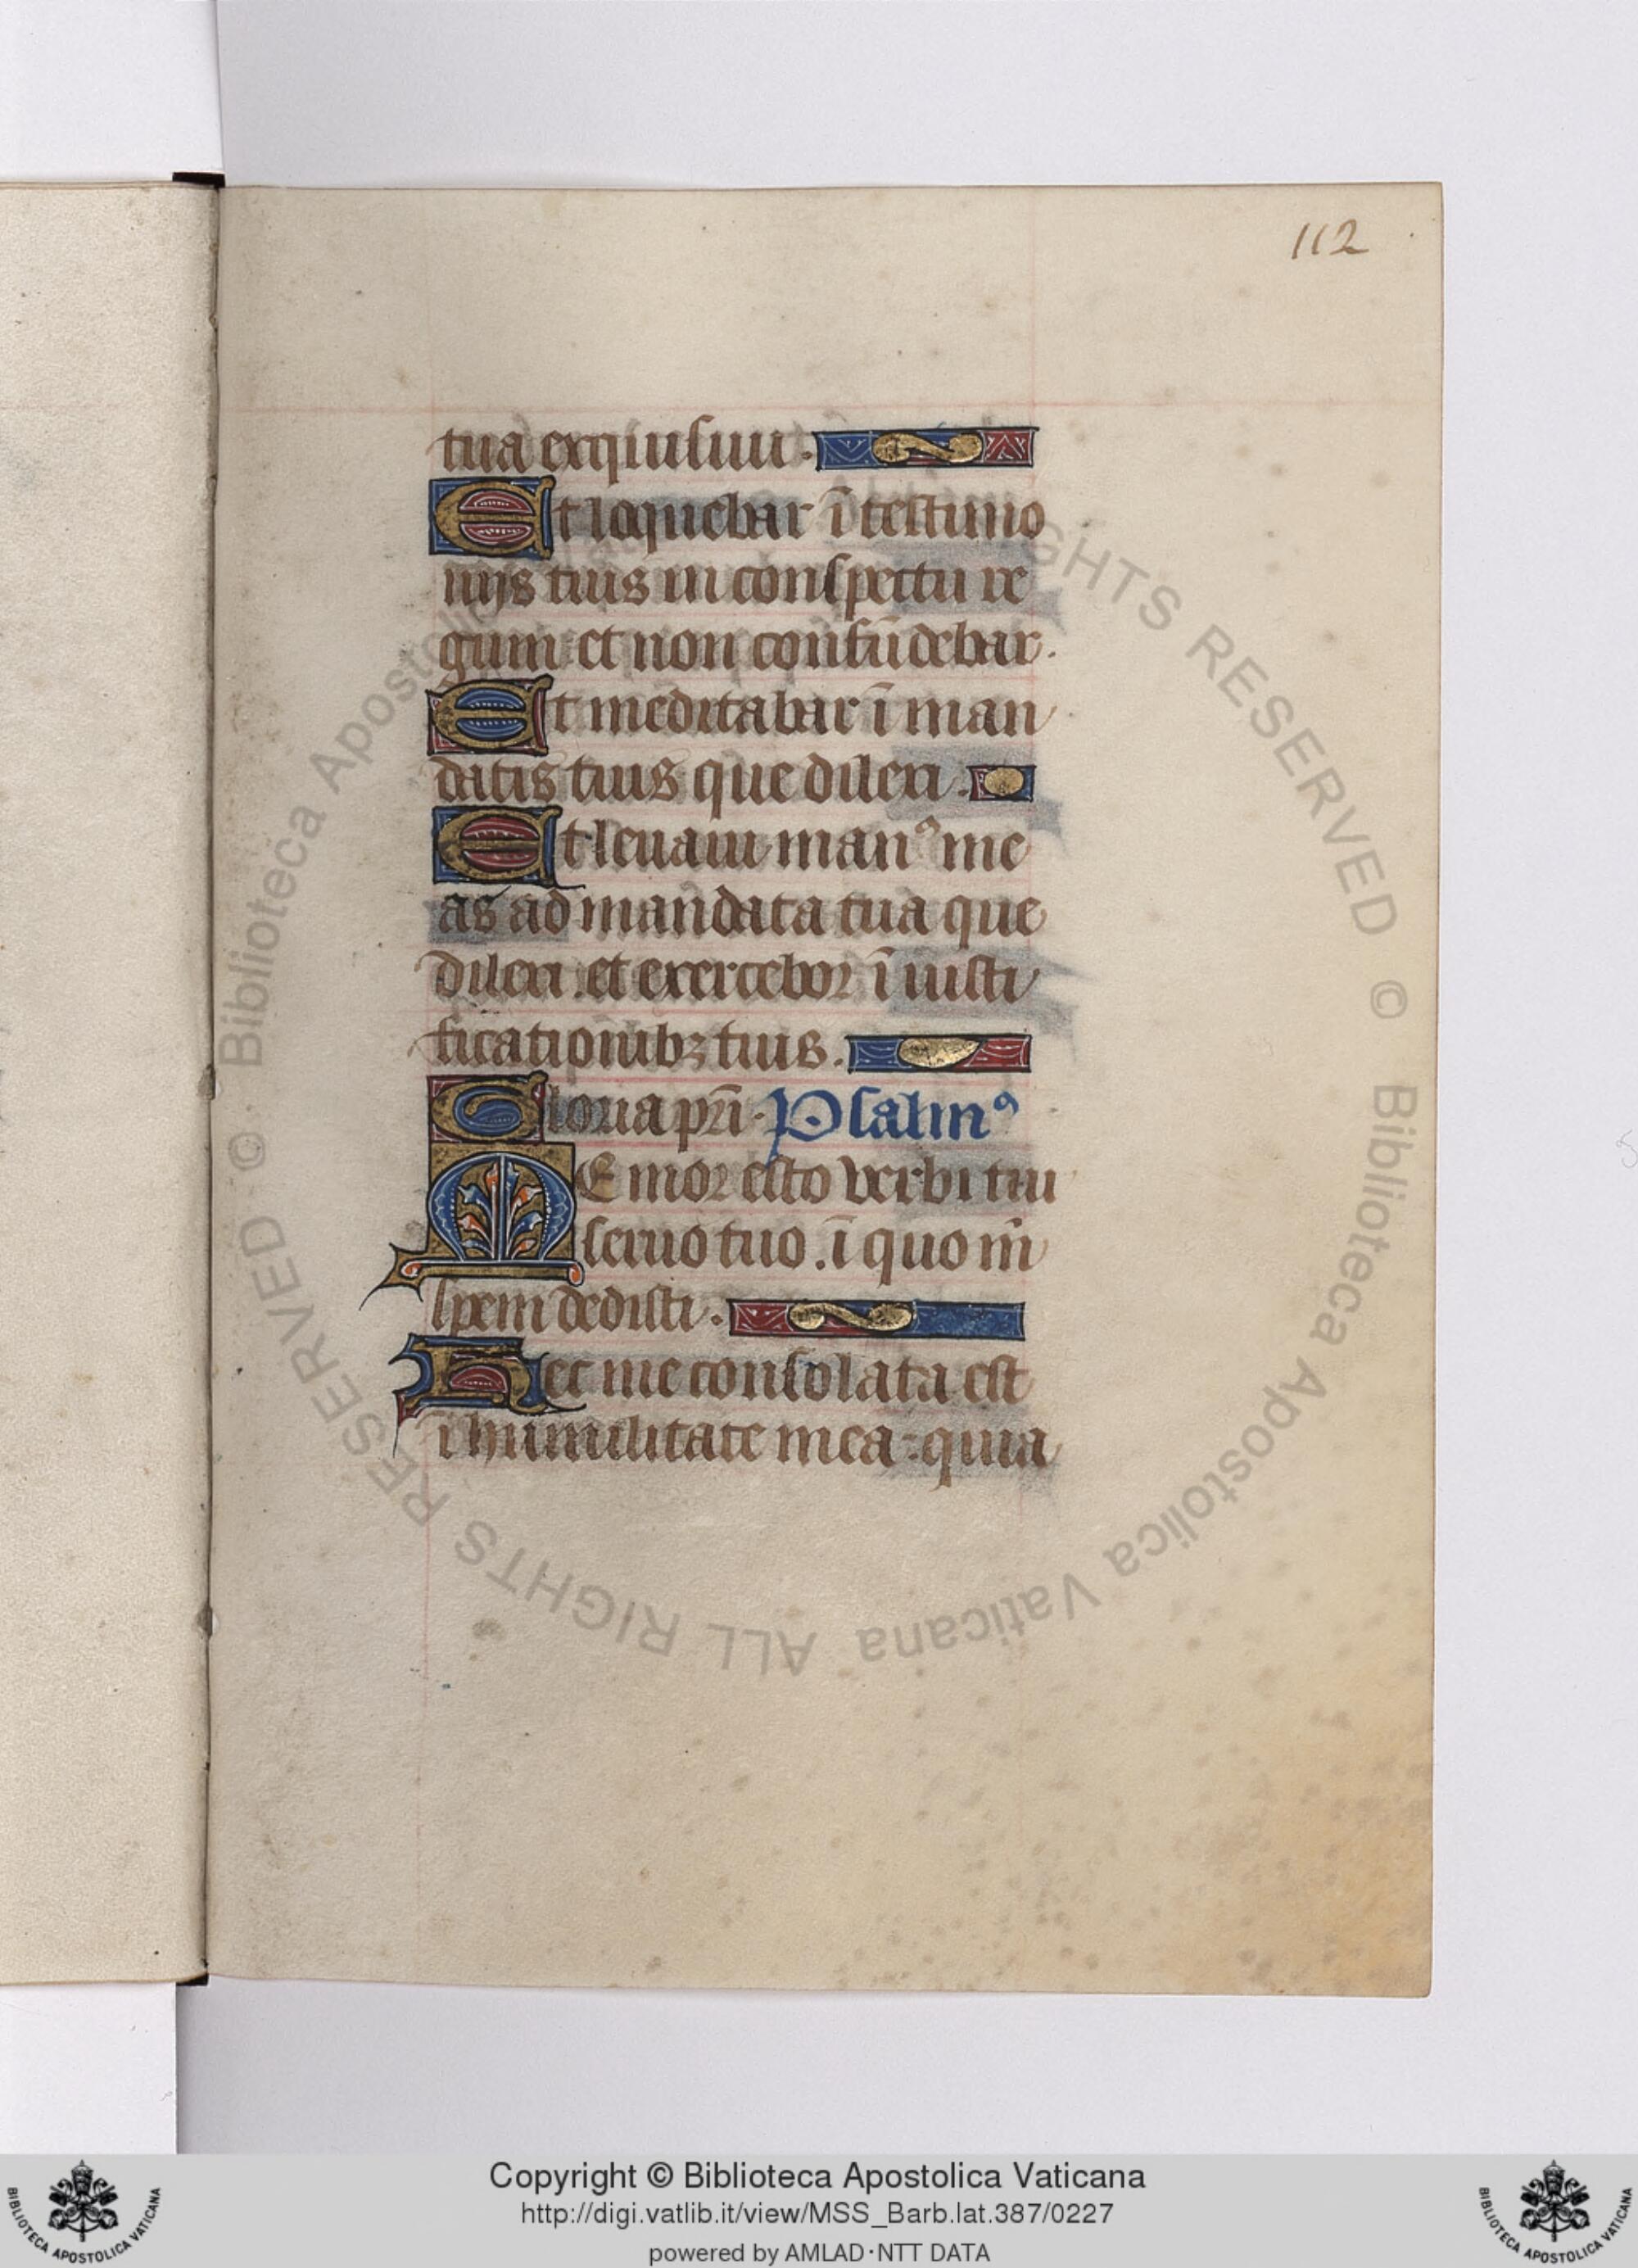 112
tua exquisiui.
Et loquebar ī testimo
nijs tuis in conspectu re
gum: et non confūdebar.
Et meditabar ī man
datis tuis que dilexi.
Et leuaui manꝰ me
as ad mandata tua que
dilexi. et exercebor ī iusti
ficationibꝫ tuis.
Gloria pr̄i. Psalmꝰ
MEmor esto verbi tui
seruo tuo. ī quo m̄
spem dedisti.
Hec me consolata est
ī humilitate mea: quia
© Biblioteca Apostolica Vaticana ALL RIGHTS RESERVED
© Biblioteca Apostolica Vaticana ALL RIGHTS RESERVED
Copyright © Biblioteca Apostolica Vaticana
http://digi.vatlib.it/view/MSS_Barb.lat.387/0227
powered by AMLAD·NTT DATA
BIBLIOTECA APOSTOLICA VATICANA
BIBLIOTECA APOSTOLICA VATICANA